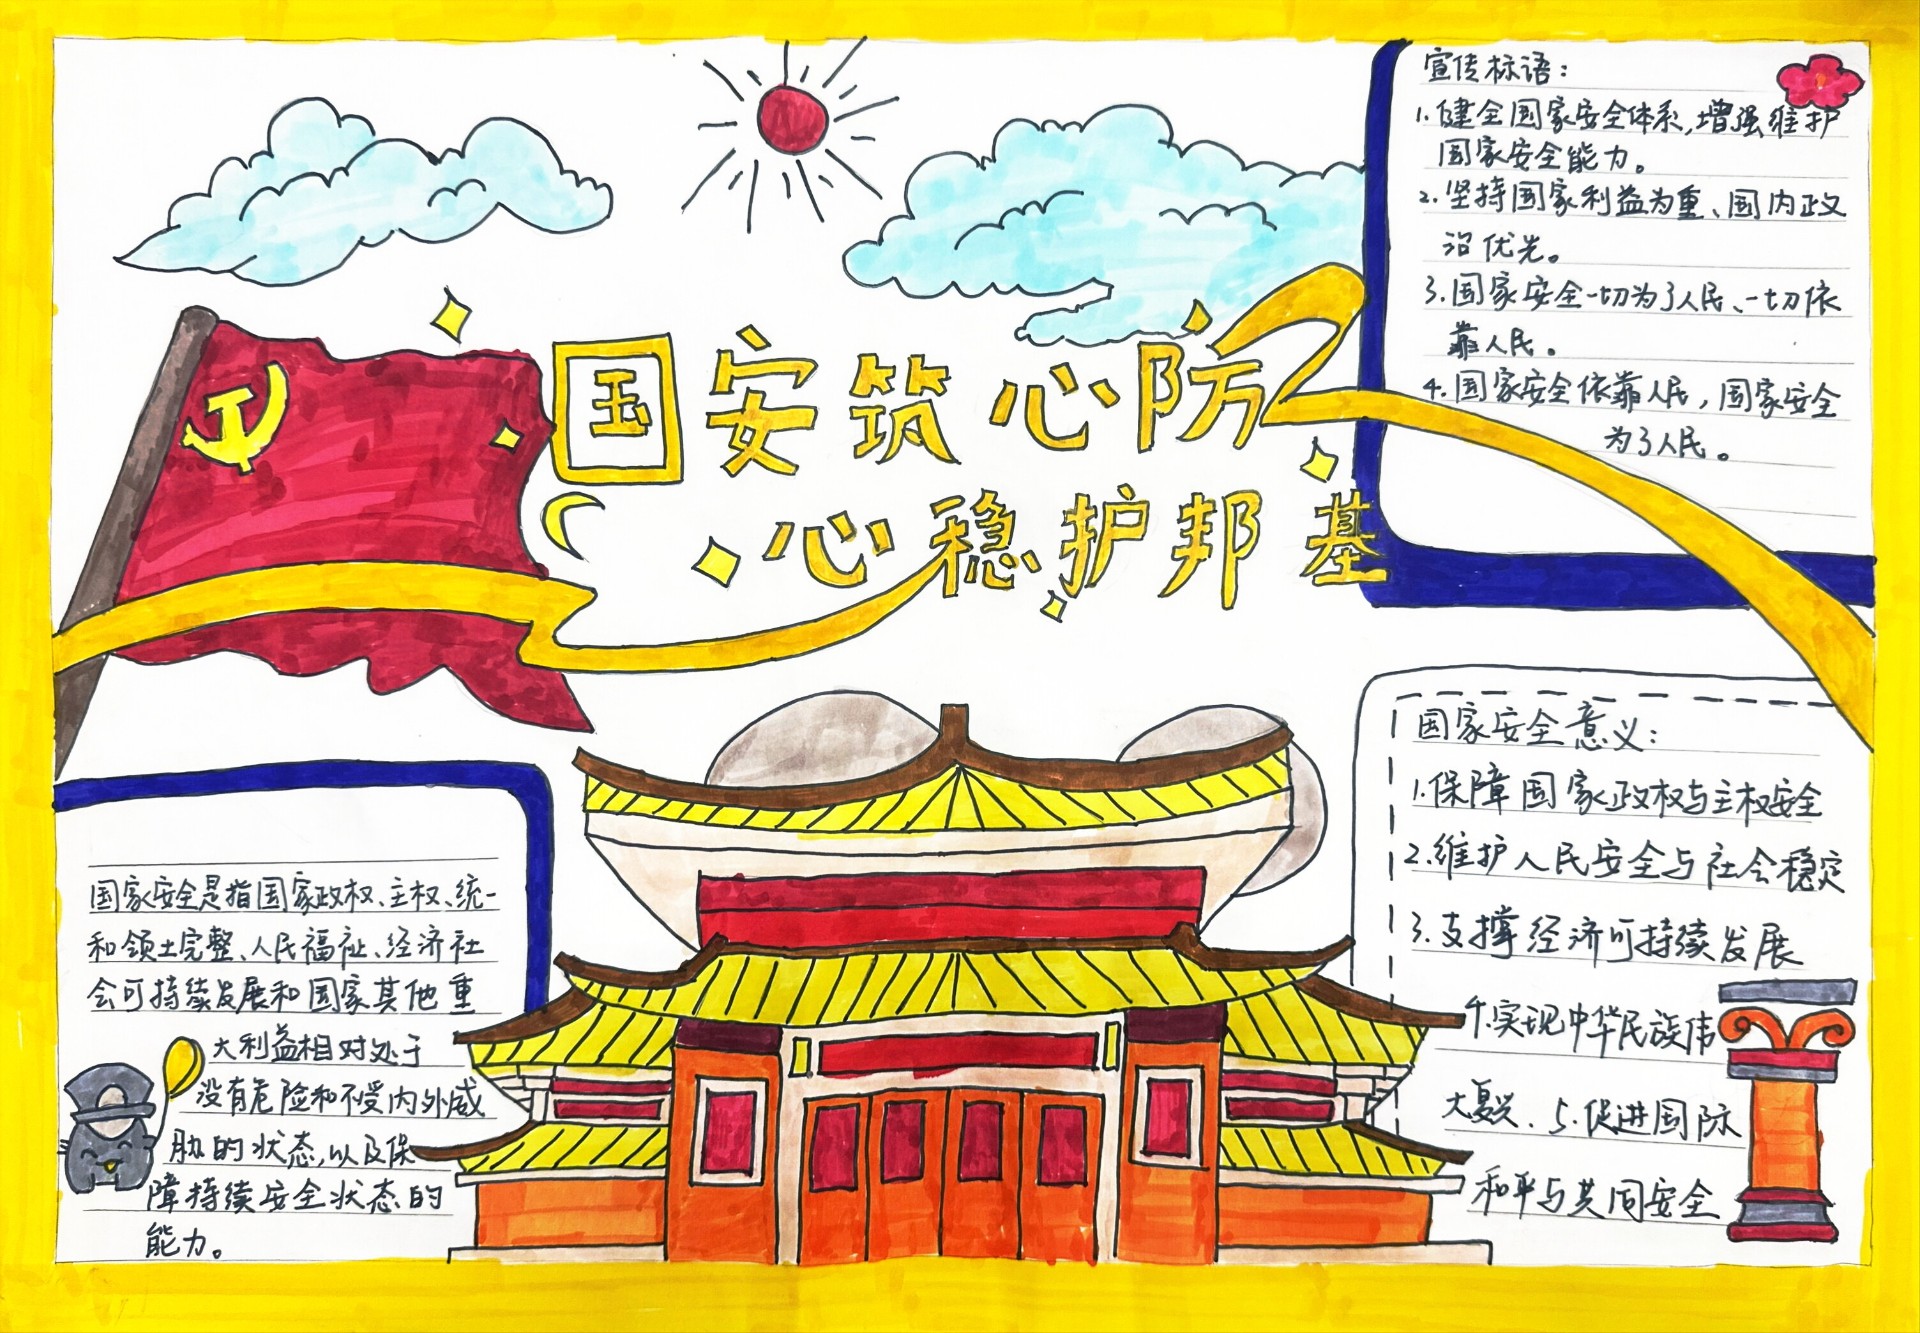 国安筑心防
心稳护邦基
宣传标语：
1.健全国家安全体系,增强维护
国家安全能力。
2.坚持国家利益为重、国内政
治优先。
3.国家安全一切为了人民、一切依
靠人民。
4.国家安全依靠人民，国家安全
为了人民。
国家安全是指国家政权、主权、统一
和领土完整、人民福祉、经济社
会可持续发展和国家其他重
大利益相对处于
没有危险和不受内外威
胁的状态,以及保
障持续安全状态的
能力。
国家安全意义：
1.保障国家政权与主权安全
2.维护人民安全与社会稳定
3.支撑经济可持续发展
4.实现中华民族伟
大复兴、5.促进国际
和平与共同安全